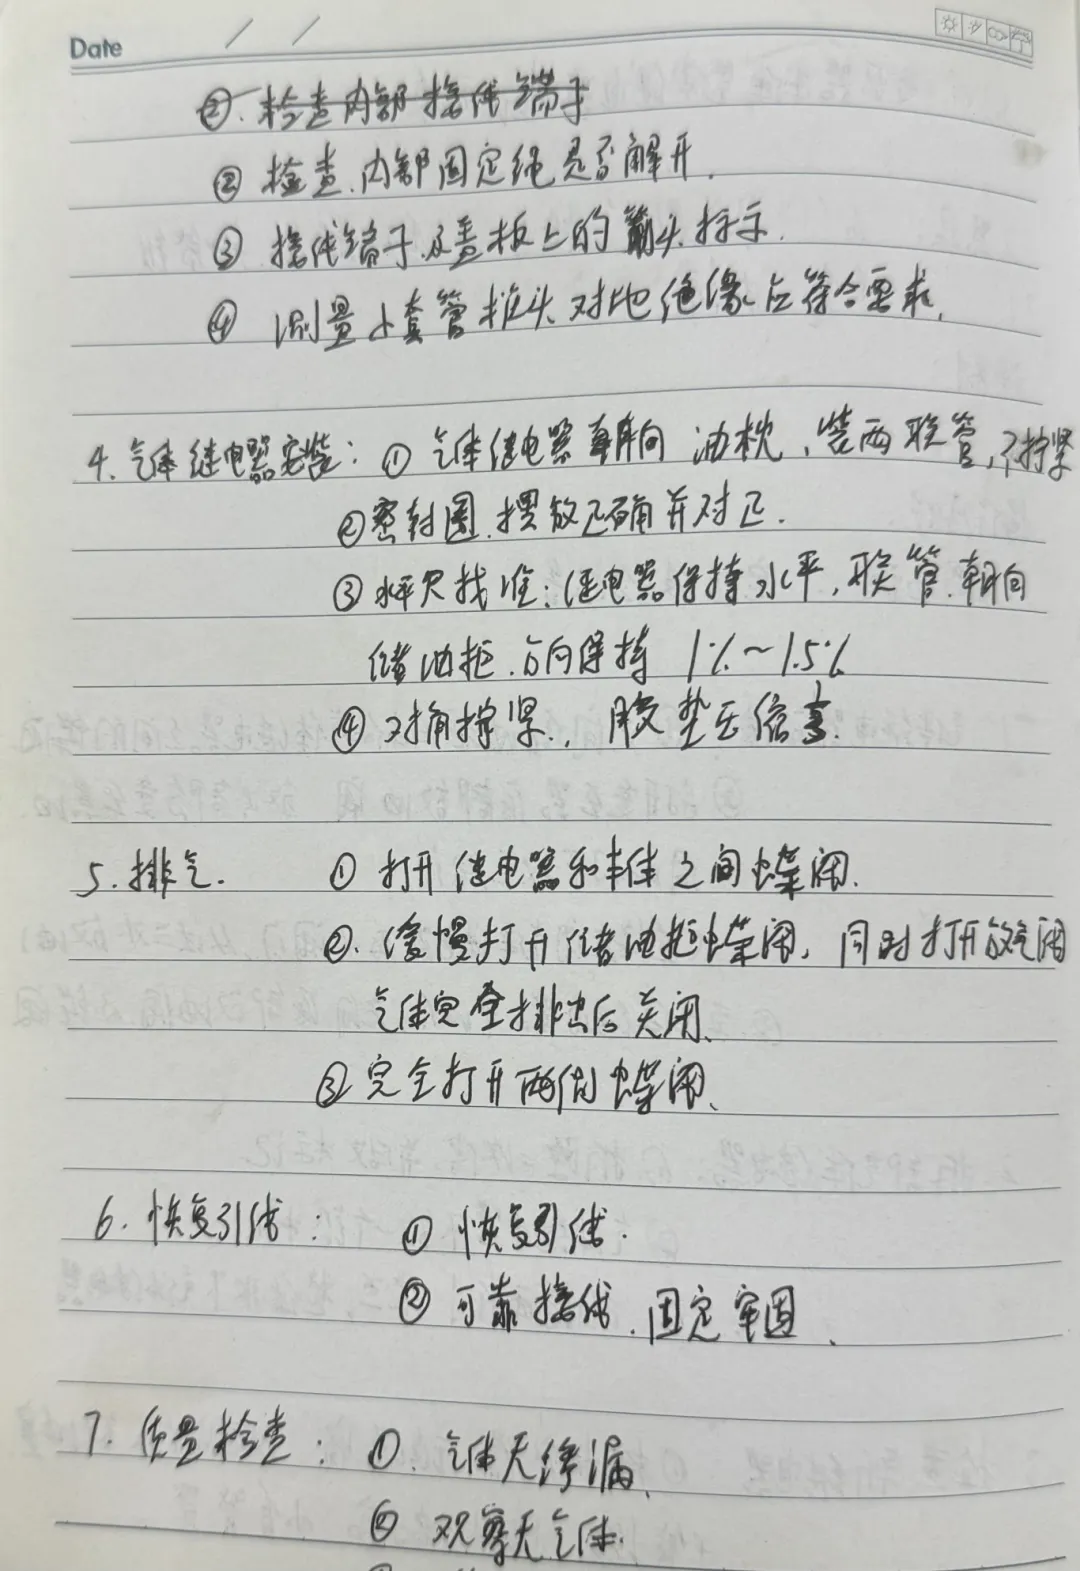 Date / /
②. 检查内部接线端子
② 检查、内部固定绳是否解开.
③ 接线端子及盖板上的箭头标示.
④ 测量小套管桩头对地绝缘应符合要求.
4. 气体继电器安装: ① 气体继电器朝向 油枕, 装两联管, 不拧紧
②密封圈.摆放正确并对正.
③ 水平尺找准: 继电器保持水平, 联管.朝向
储油柜.方向保持 1%~1.5%
④ 对角拧紧., 胶垫压缩量.
5. 排气. ① 打开继电器和本体之间蝶阀.
②. 缓慢打开储油柜蝶阀, 同时打开放气阀
气体完全排出后关闭、
③ 完全打开两侧蝶阀、
6. 恢复引线: ① 恢复引线.
② 可靠接线.固定牢固、
7. 质量检查: ①. 气体无渗漏、
② 观察无气体.